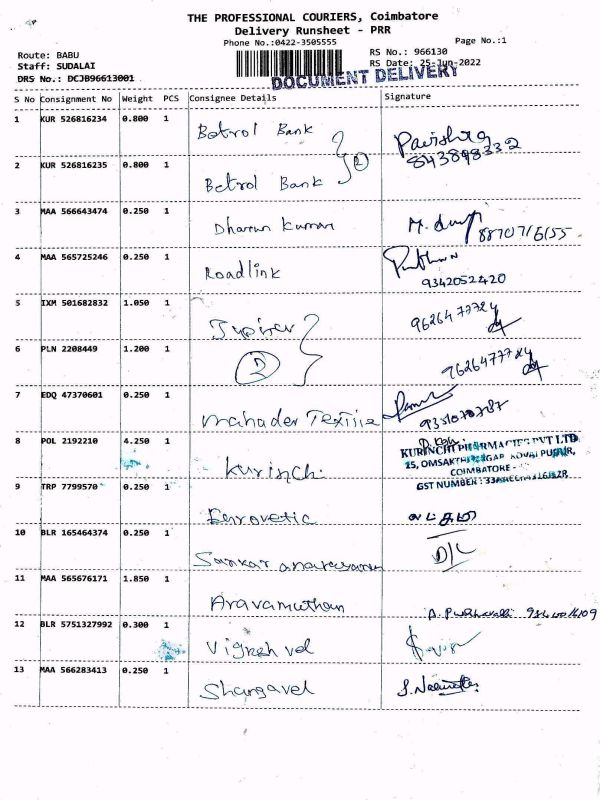 THE PROFESSIONAL COURIERS, Coimbatore
Delivery Runsheet - PRR
Phone No.:0422-3505555
Page No.:1
Route: BABU
Staff: SUDALAI
DRS No.: DCJB96613001
RS No.: 966130
RS Date: 25-Jun-2022
DOCUMENT DELIVERY
S No Consignment No Weight PCS Consignee Details Signature
1 KUR 526816234 0.800 1 Betrol Bank
843898332
2 KUR 526816235 0.800 1 Betrol Bank
2
3 MAA 566643474 0.250 1 Dharun kumar
8870716155
4 MAA 565725246 0.250 1 Roadlink
9342052420
5 IXM 501682832 1.050 1 Jupiter 9626477724
6 PLN 2208449 1.200 1 2 9626477724
7 EDQ 47370601 0.250 1 mahadev Textile
8 POL 2192210 4.250 1 Kurinchi
KURINCHI PHARMACIES PVT LTD
COIMBATORE -
GST NUMBER :
9 TRP 7799570 0.250 1
10 BLR 165464374 0.250 1 Sankar D/C
11 MAA 565676171 1.850 1 Aravamuthan
12 BLR 5751327992 0.300 1 Vignesh vel
13 MAA 566283413 0.250 1 Shangavel